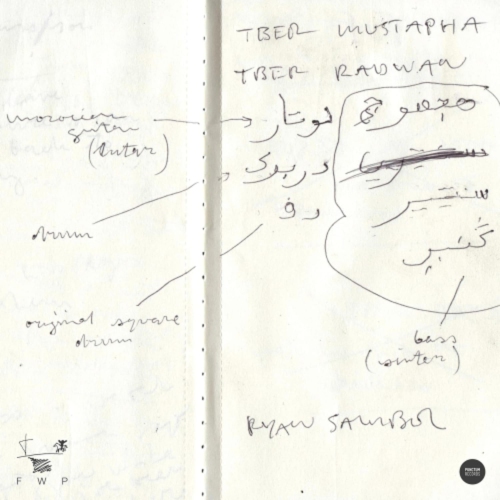 TBER MUSTAPHA
TBER RADWAN
moroccian
guitar
(lutar)
لوتار
دربوك
دف
سنتير
گنبر
drum
original square
drum
bass
(sinter)
RYAN SAMBOL
F W P